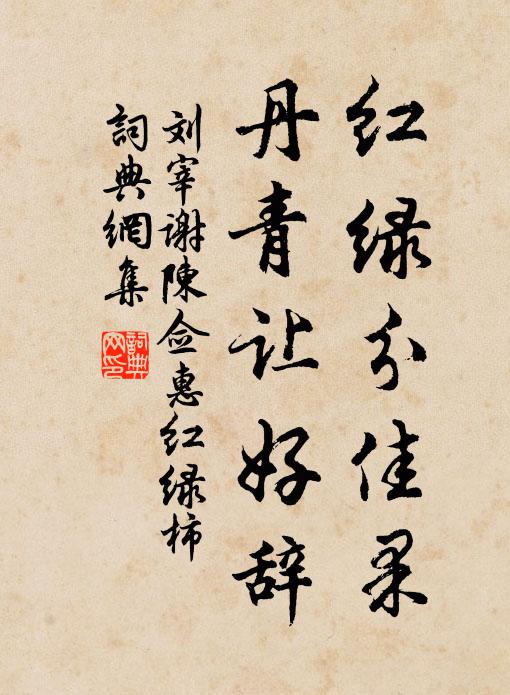 红绿分佳果
丹青让好辞
刘宰谢陳佥惠红绿柿
詞典網集
詞典網印